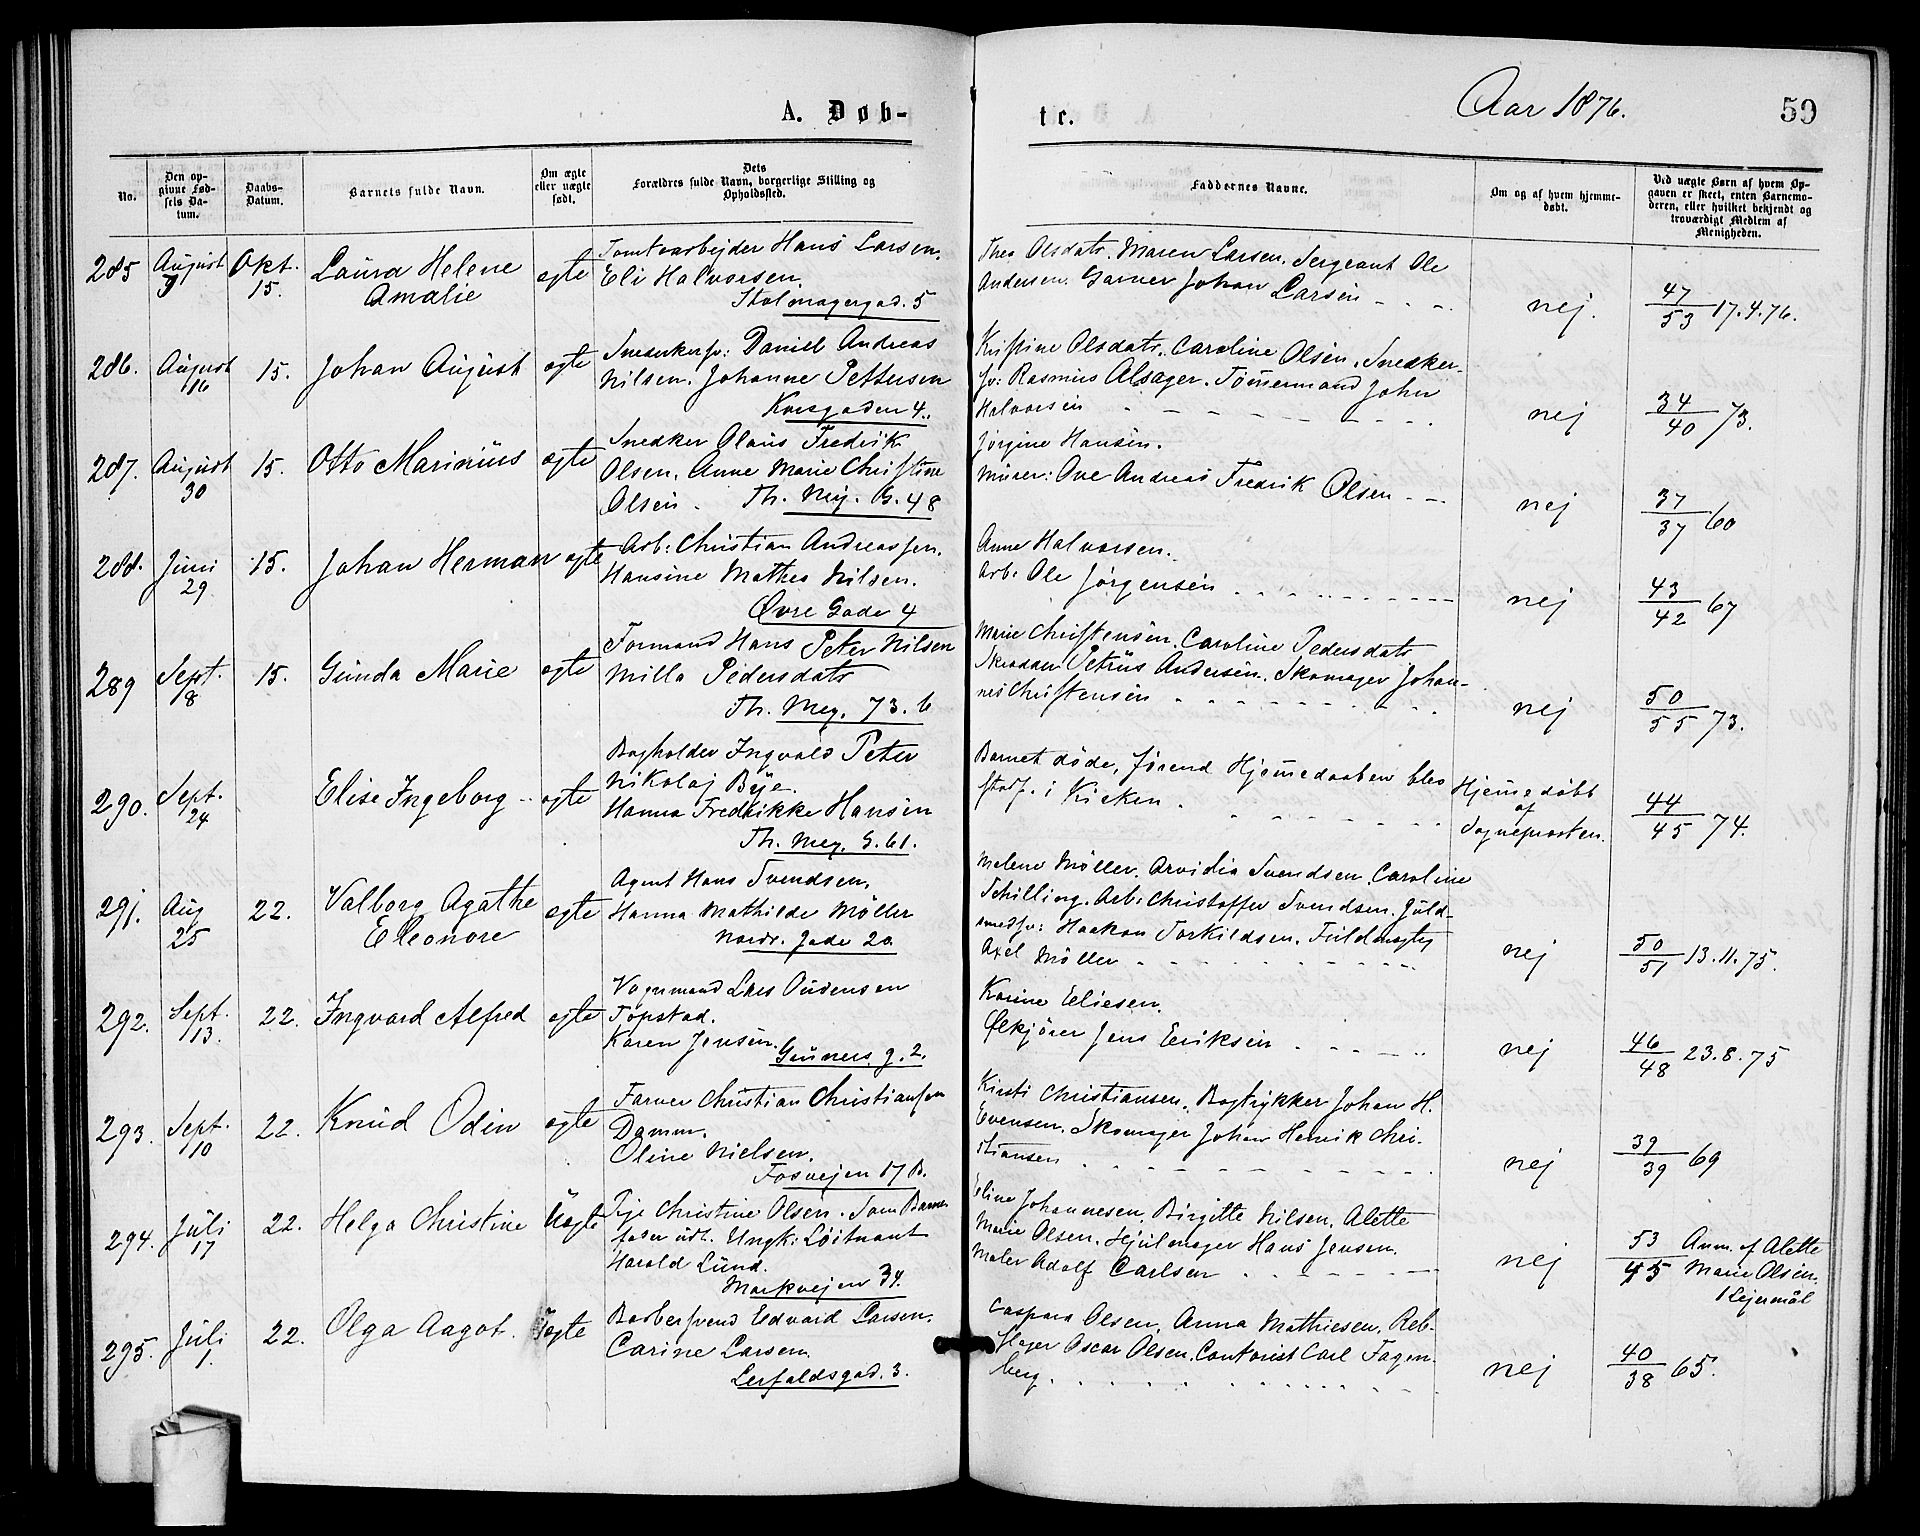 A. Døb-
te.
Aar 1876.
59
No.
Den op-
givne Fød-
sels Da-
tum.
Daabs-
Datum.
Barnets fulde Navn.
Om ægte
eller uægte
født.
Dets
Forældres fulde Navn, borgerlige Stilling og
Opholdssted.
Faddernes Navne.
Om og af hvem hjemme-
døbt.
Ved uægte Børn af hvem Op-
gaven er skeet, enten Barnemo-
deren, eller hvilket bekjendt og
troværdigt Medlem af
Menigheden.
285
August
9
Okt.
15.
Laura Helene
Amalie
ægte
Tomtearbejder Hans Larsen.
Eli Halvorsen.
Stolmagergad. 5
Thea Olsdatr. Maren Larsen. Sergeant Ole
Andersen. Garver Johan Larsen
nej.
47
53 17.4.76.
286.
August
16
15.
Johan August
ægte
Snedkersv: Daniel Andreas
Nilsen. Johanne Pettersen
Korsgaden 4.
Kristine Olsdatr. Caroline Olsen. Snedker-
sv: Rasmus Alsager. Tømmermand John
Halvorsen
nej
34
40 73.
287.
August
30
15.
Otto Marinius
ægte
Snedker Olaus Fredrik
Olsen. Anne Marie Christine
Olsen. Th. Mej. G. 48
Jørgine Hansen.
Murer: Ove Andreas Fredrik Olsen
nej
37
37 60
288.
Juni
29
15.
Johan Herman
ægte
Arb: Christian Andreassen.
Hansine Mathea Nilsen.
Øvre Gade 4
Anne Halvorsen.
Arb: Ole Jørgensen
nej
43
42 67
289
Sept.
8
15.
Gunda Marie
ægte
Formand Hans Peter Nilsen
Milla Pedersdatr
Th. Mey. 73. b
Marie Christensen. Caroline Pedersdatr
Skrædder Petrus Andersen. Skomager Johan-
nes Christensen
nej
50
55 73.
290.
Sept.
24
Elise Ingeborg
ægte
Bogholder Ingvald Peter
Nikolaj Bye.
Hanna Fredrikke Hansen
Th. Mey. G. 61.
Barnet døde, førend Hjemmedaaben blev
stadf. i Kirken.
Hjemmedøbt
af
Sognepræsten.
44
45 74.
291.
Aug
25
22.
Valborg Agathe
Eleonore
ægte
Agent Hans Svendsen.
Hanna Mathilde Möller
Nordr. Gade 20
Melene Möller. Arvidia Svendsen. Caroline
Schilling. Arb: Christoffer Svendsen. Guld-
smedsv: Haakon Torkildsen. Fuldmægtig
Axel Möller
nej
50
51 13.11.75.
292.
Sept.
13.
22.
Ingvard Alfred
ægte
Vognmand Lars Audensen
Topstad.
Karen Jensen.
Gruners. g. 2.
Karine Eliesen.
Ølkjører Jens Eriksen
nej
46
48 23.8.75
293.
Sept.
10
22.
Knud Odin
ægte
Farver Christian Christiansen
Damm.
Oline Nielsen.
Fosvejen 17 B.
Kirsti Christiansen. Bogtrykker Johan H.
Evensen. Skomager Johan Henrik Chri-
stiansen
nej
39
39 69
294.
Juli
17
22.
Helga Christine
Uægte
Pige Christine Olsen. Som Barne
fader udl. Ungk: Löitnant
Harald Lund.
Markvejen 34.
Eline Johannesen. Birgitte Nilsen. Alette
Marie Olsen. Hjulmager Hans Jensen.
Maler Adolf Carlsen
nej
53
45
Anm. af Alette
Marie Olsen.
1 Lejermål
295.
Juli
1.
22.
Olga Aagot.
ægte
Barbersvend Edvard Larsen.
Carine Larsen.
Lerfaldsgad. 3.
Caspara Olsen. Anna Mathiesen. Reb-
slager Oscar Olsen. Contorist Carl Fagen
berg.
nej
40
38 65.